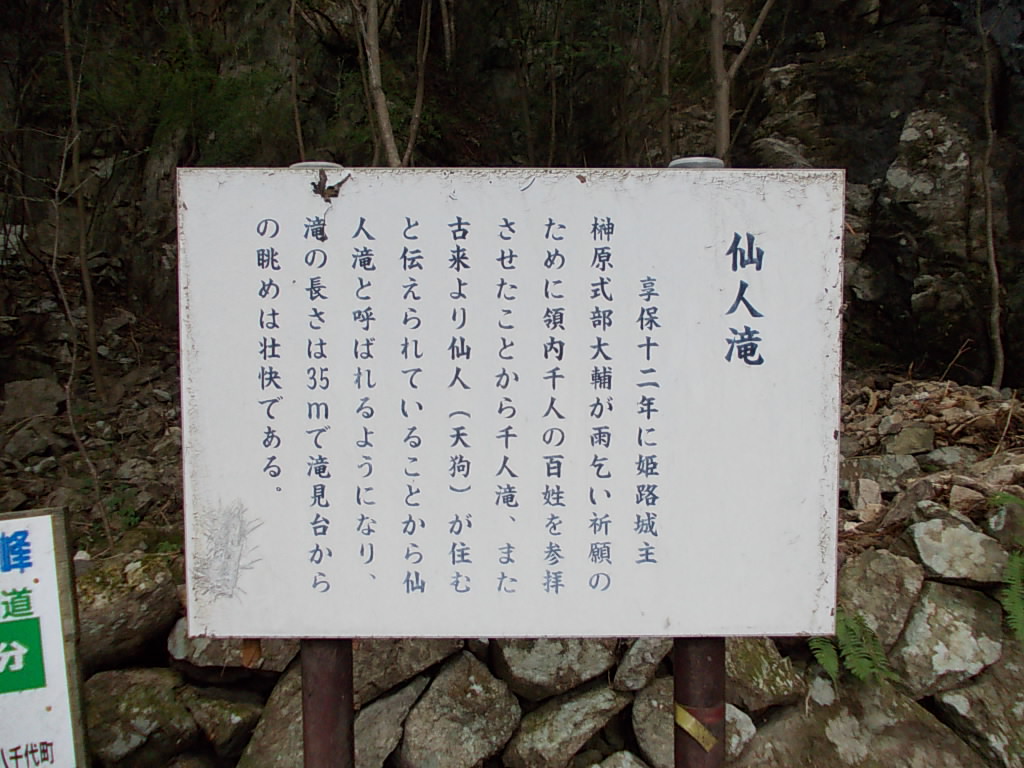 仙人滝
享保十二年に姫路城主
榊原式部大輔が雨乞い祈願の
ために領内千人の百姓を参拝
させたことから千人滝、また
古来より仙人（天狗）が住む
と伝えられていることから仙
人滝と呼ばれるようになり、
滝の長さは35mで滝見台から
の眺めは壮快である。
峰
道
分
八千代町